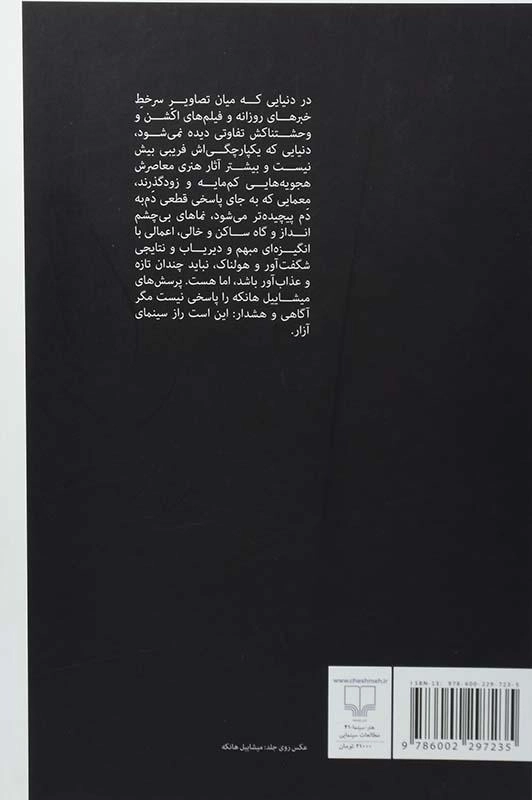 در دنیایی که میان تصاویر سرخطِ
خبرهای روزانه و فیلم‌های اکشن و
وحشتناکش تفاوتی دیده نمی‌شود،
دنیایی که یکپارچگی‌اش فریبی بیش
نیست و بیشتر آثار هنری معاصرش
هجویه‌هایی کم‌مایه و زودگذرند،
معمایی که به جای پاسخی قطعی دَم‌به
دَم پیچیده‌تر می‌شود، نماهای بی‌چشم
انداز و گاه ساکن و خالی، اعمالی با
انگیزه‌ای مبهم و دیریاب و نتایجی
شگفت‌آور و هولناک، نباید چندان تازه
و عذاب‌آور باشد، اما هست. پرسش‌های
میشاییل هانکه را پاسخی نیست مگر
آگاهی و هشدار: این است راز سینمای
آزار.
www.cheshmeh.ir
هنر-سینما: ۴۱
مطالعات سینمایی
۲۱۰۰۰ تومان
ISBN-13: 978-600-229-723-5
9 786002 297235
عکس روی جلد: میشاییل هانکه